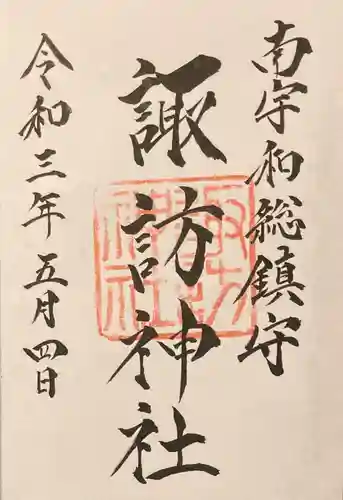 南宇和総鎮守
諏訪神社
令和三年五月四日
諏訪
神社